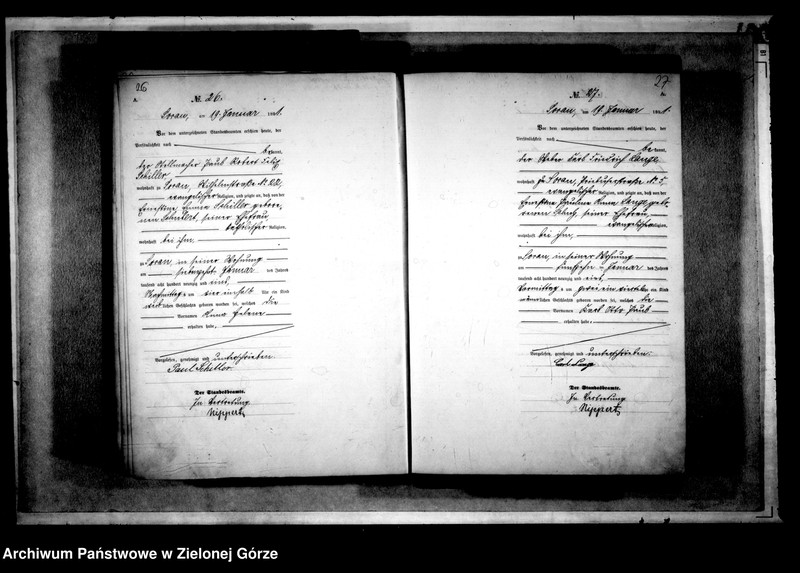 26
A.
Nr. 26.
Sorau, am 19. Januar 1891.
Vor dem unterzeichneten Standesbeamten erschien heute, der
Persönlichkeit nach
be kannt,
der Stellmacher Paul Robert Felix
Schiller,
wohnhaft zu Sorau, Wilhelmstraße Nr.
evangelischer Religion, und zeigte an, daß von der
Ernestine Emma Schiller gebore-
nen Schubert, seiner Ehefrau,
Religion,
wohnhaft bei ihm,
zu Sorau, in seiner Wohnung
am siebzehnten Januar des Jahres
tausend acht hundert neunzig und eins,
Nachmittags um vier einhalb Uhr ein Kind
weiblichen Geschlechts geboren worden sei, welches die
Vornamen Anna Helene
erhalten habe.
Vorgelesen, genehmigt und unterschrieben
Paul Schiller
Der Standesbeamte.
In Vertretung
Nippert
27
Nr. 27.
Sorau, am 19. Januar 1891.
Vor dem unterzeichneten Standesbeamten erschien heute, der
Persönlichkeit nach
be kannt,
der Weber Karl Friedrich Lange,
wohnhaft zu Sorau,
evangelischer Religion, und zeigte an, daß von der
Ernestine Pauline Anna Lange gebo-
renen, seiner Ehefrau,
evangelischer Religion,
wohnhaft bei ihm,
zu Sorau, in seiner Wohnung
am fünfzehnten Januar des Jahres
tausend acht hundert neunzig und eins,
Vormittags um Uhr ein Kind
männlichen Geschlechts geboren worden sei, welches die
Vornamen Karl Otto Paul
erhalten habe.
Vorgelesen, genehmigt und unterschrieben.
Carl Lange
Der Standesbeamte.
In Vertretung
Nippert
Archiwum Państwowe w Zielonej Górze